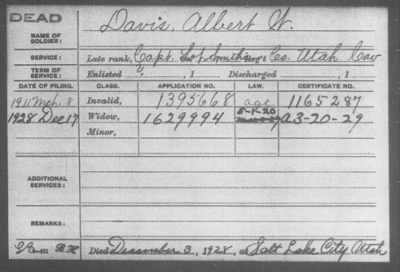 DEAD
NAME OF SOLDIER: Davis, Albert W.
SERVICE: Late rank, Capt. Lot Smith's Co. Utah Cav
TERM OF SERVICE: Enlisted , 1 Discharged , 1
DATE OF FILING. CLASS. APPLICATION NO. LAW. CERTIFICATE NO.
1911 Mch 8 Invalid, 1395668 age 1165287
5-1-20
1928 Dec 17 Widow, 1629994 A3-20-29
Minor,
ADDITIONAL SERVICES:
REMARKS:
Died December 3, 1928, at Salt Lake City Utah